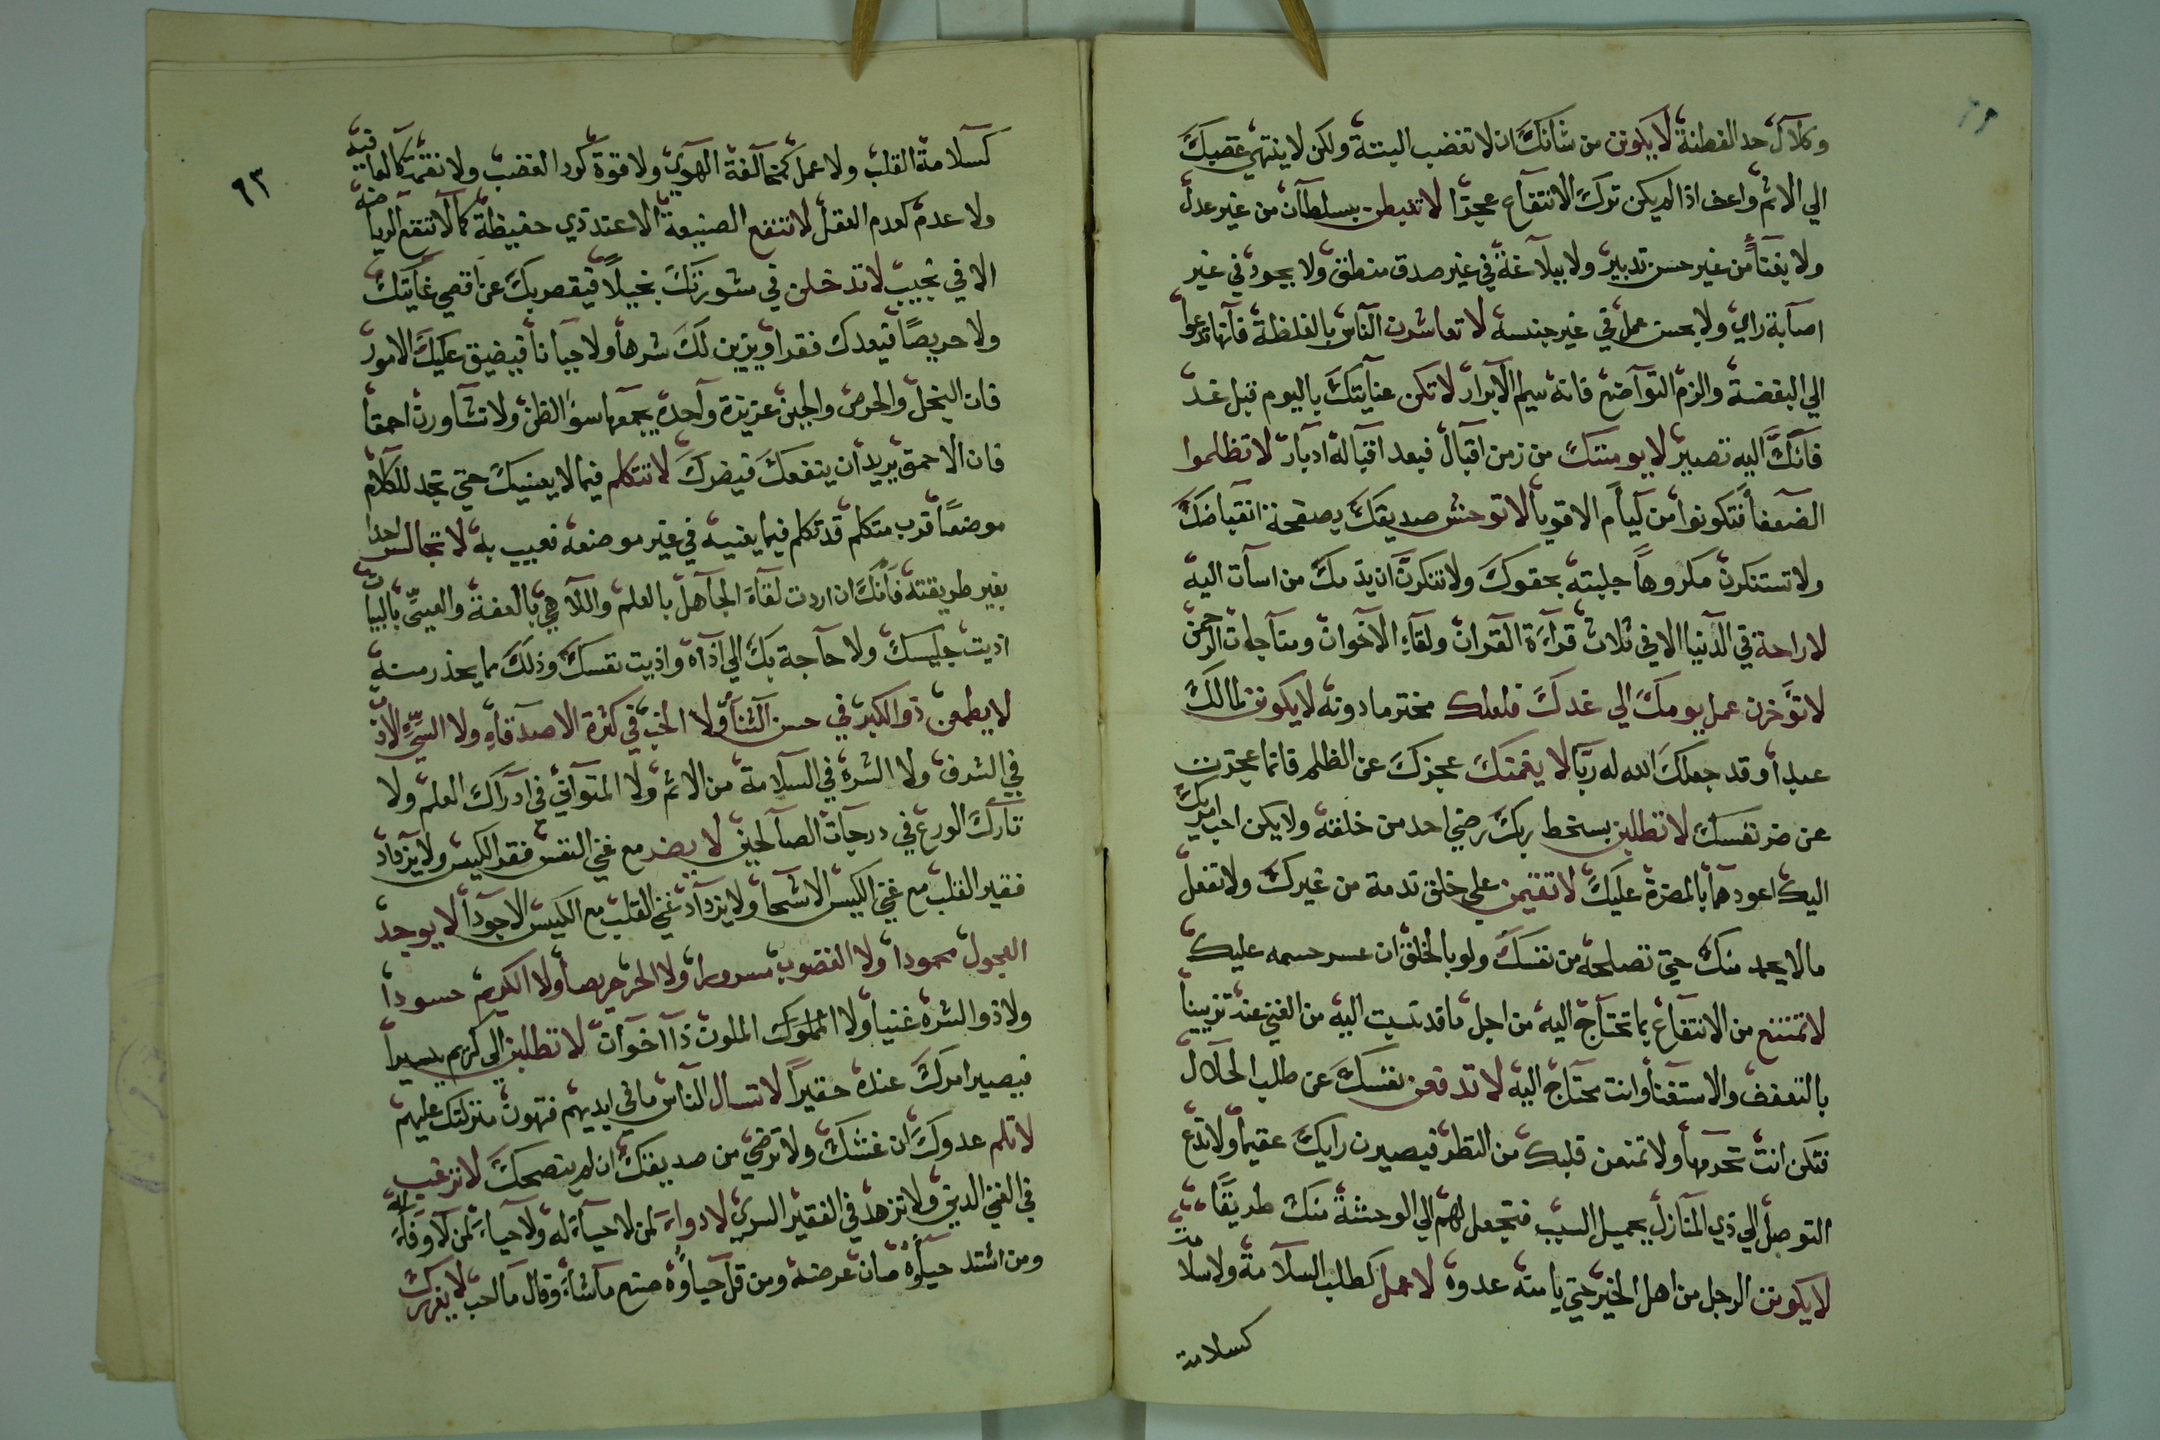 وكلال حد الفطنة لا يكونن من شانك ان لا تغضب البتة ولكن لا ينتهي غضبك
الي الاثم واعف اذا لم يكن ترك الانتقام عجزا لا تغبطن بسلطان من غير عدل
ولا بغنا من غير حسن تدبير ولا ببلاغة في غير صدق منطق ولا بجود في غير
اصابة راي ولا بحسن عمل في غير حسنة لا تعاشرن الناس بالغلظة فانها تدعوا
الي البغضة والزم التواضع فانه سيم الابرار لا تكن عنايتك باليوم قبل غد
فانك اليه تصير لا يومننك من زمن اقبال فبعد اقباله ادبار لا تظلموا
الضعفا فتكونوا من لئام الاقويا لا توحش صديقك بصفحة انقباضك
ولا تستنكرن مكروها جلبته بعقوك ولا تنكرن ان يذمك من اسات اليه
لا راحة في الدنيا الا في ثلاث قراءة القران ولقاء الاخوان ومناجات الرحمن
لا تؤخرن عمل يومك الي غدك فلعلك مخترما دونه لا يكونن لمالك
عبدا وقد جعلك الله له ربا لا يغمنك عجزك عن الظلم فانما عجزت
عن ضر نفسك لا تطلبن بسخط ربك رضي احد من خلقه ولا يكن احب امريك
اليك اعودهما بالمضرة عليك لا تقيمن علي خلق تذمه من غيرك ولا تفعل
ما لا يحمد منك حتي تصلحه من نفسك ولو بالخلق ان عسر حسمه عليك
لا تمتنع من الانتفاع بما تحتاج اليه من اجل ما قد نسبت اليه من الغني عنه تزيينا
بالتعفف والاستغنا وانت محتاج اليه لا تدفعن نفسك عن طلب الحلال
فتكن انت تحرمها ولا تمنعن قلبك من النظر فيصيرن رايك عقيما ولا تدع
التوصل الي ذي المنازل بجميل السبب فتجعل لهم الي الوحشة منك طريقا
لا يكونن الرجل من اهل الخير حتي يامنه عدوه لا عمل كطلب السلامة ولا سلامة
كسلامة
٩٣
كسلامة القلب ولا عمل كمخالفة الهوي ولا قوة كرد الغضب ولا نقمة كالعافية
ولا عدم كعدم العقل لا تنفع الصنيعة الا عند ذي حفيظة كما لا تنفع الرياضة
الا في نجيب لا تدخلن في مشورتك بخيلا فيقصر بك عن اقصي غايتك
ولا حريصا فيعدك فقرا ويزين لك شرها ولا جبانا فيضيق عليك الامور
فان البخل والحرص والجبن غريزة واحدة يجمعها سوء الظن ولا تشاورن احمقا
فان الاحمق يريد ان ينفعك فيضرك لا تتكلم فيما لا يعنيك حتي تجد للكلام
موضعا فرب متكلم قد تكلم فيما يعنيه في غير موضعه فعيب به لا تجالس احدا
بغير طريقته فانك ان اردت لقاء الجاهل بالعلم واللاهي بالعفة والعيي بالبيان
اذيت جليسك ولا حاجة بك الي اذاه واذيت نفسك وذلك مما يحذر منه
لا يطمعن ذو الكبر في حسن الثنا ولا الخب في كثرة الاصدقاء ولا السيء الادب
في الشرف ولا الشره في السلامة من الاثم ولا المتواني في ادراك العلم ولا
تارك الورع في درجات الصالحين لا يضر مع غني النفس فقر الكيس ولا يزداد
فقير القلب مع غني الكيس الا شحا ولا يزداد غني القلب مع الكيس الا جودا لا يوجد
العجول محمودا ولا الغضوب مسرورا ولا الحر حريصا ولا الكريم حسودا
ولا ذو الشره غنيا ولا المملوك الملون ذا اخوان لا تطلبن الي كريم يسيرا
فيصير امرك عنده حقيرا لا تسال الناس ما في ايديهم فتهون منزلتك عليهم
لا تلم عدوك ان غشك ولا ترضي من صديقك ان لم ينصحك لا ترغب
في الغني الدني ولا تزهد في الفقير السري لا دواء لمن لا حياة له ولا حياء لمن لا وفاء له
ومن اشتد حياؤه صان عرضه ومن قل حياؤه صنع ما شاء وقال ما احب لا يغرك